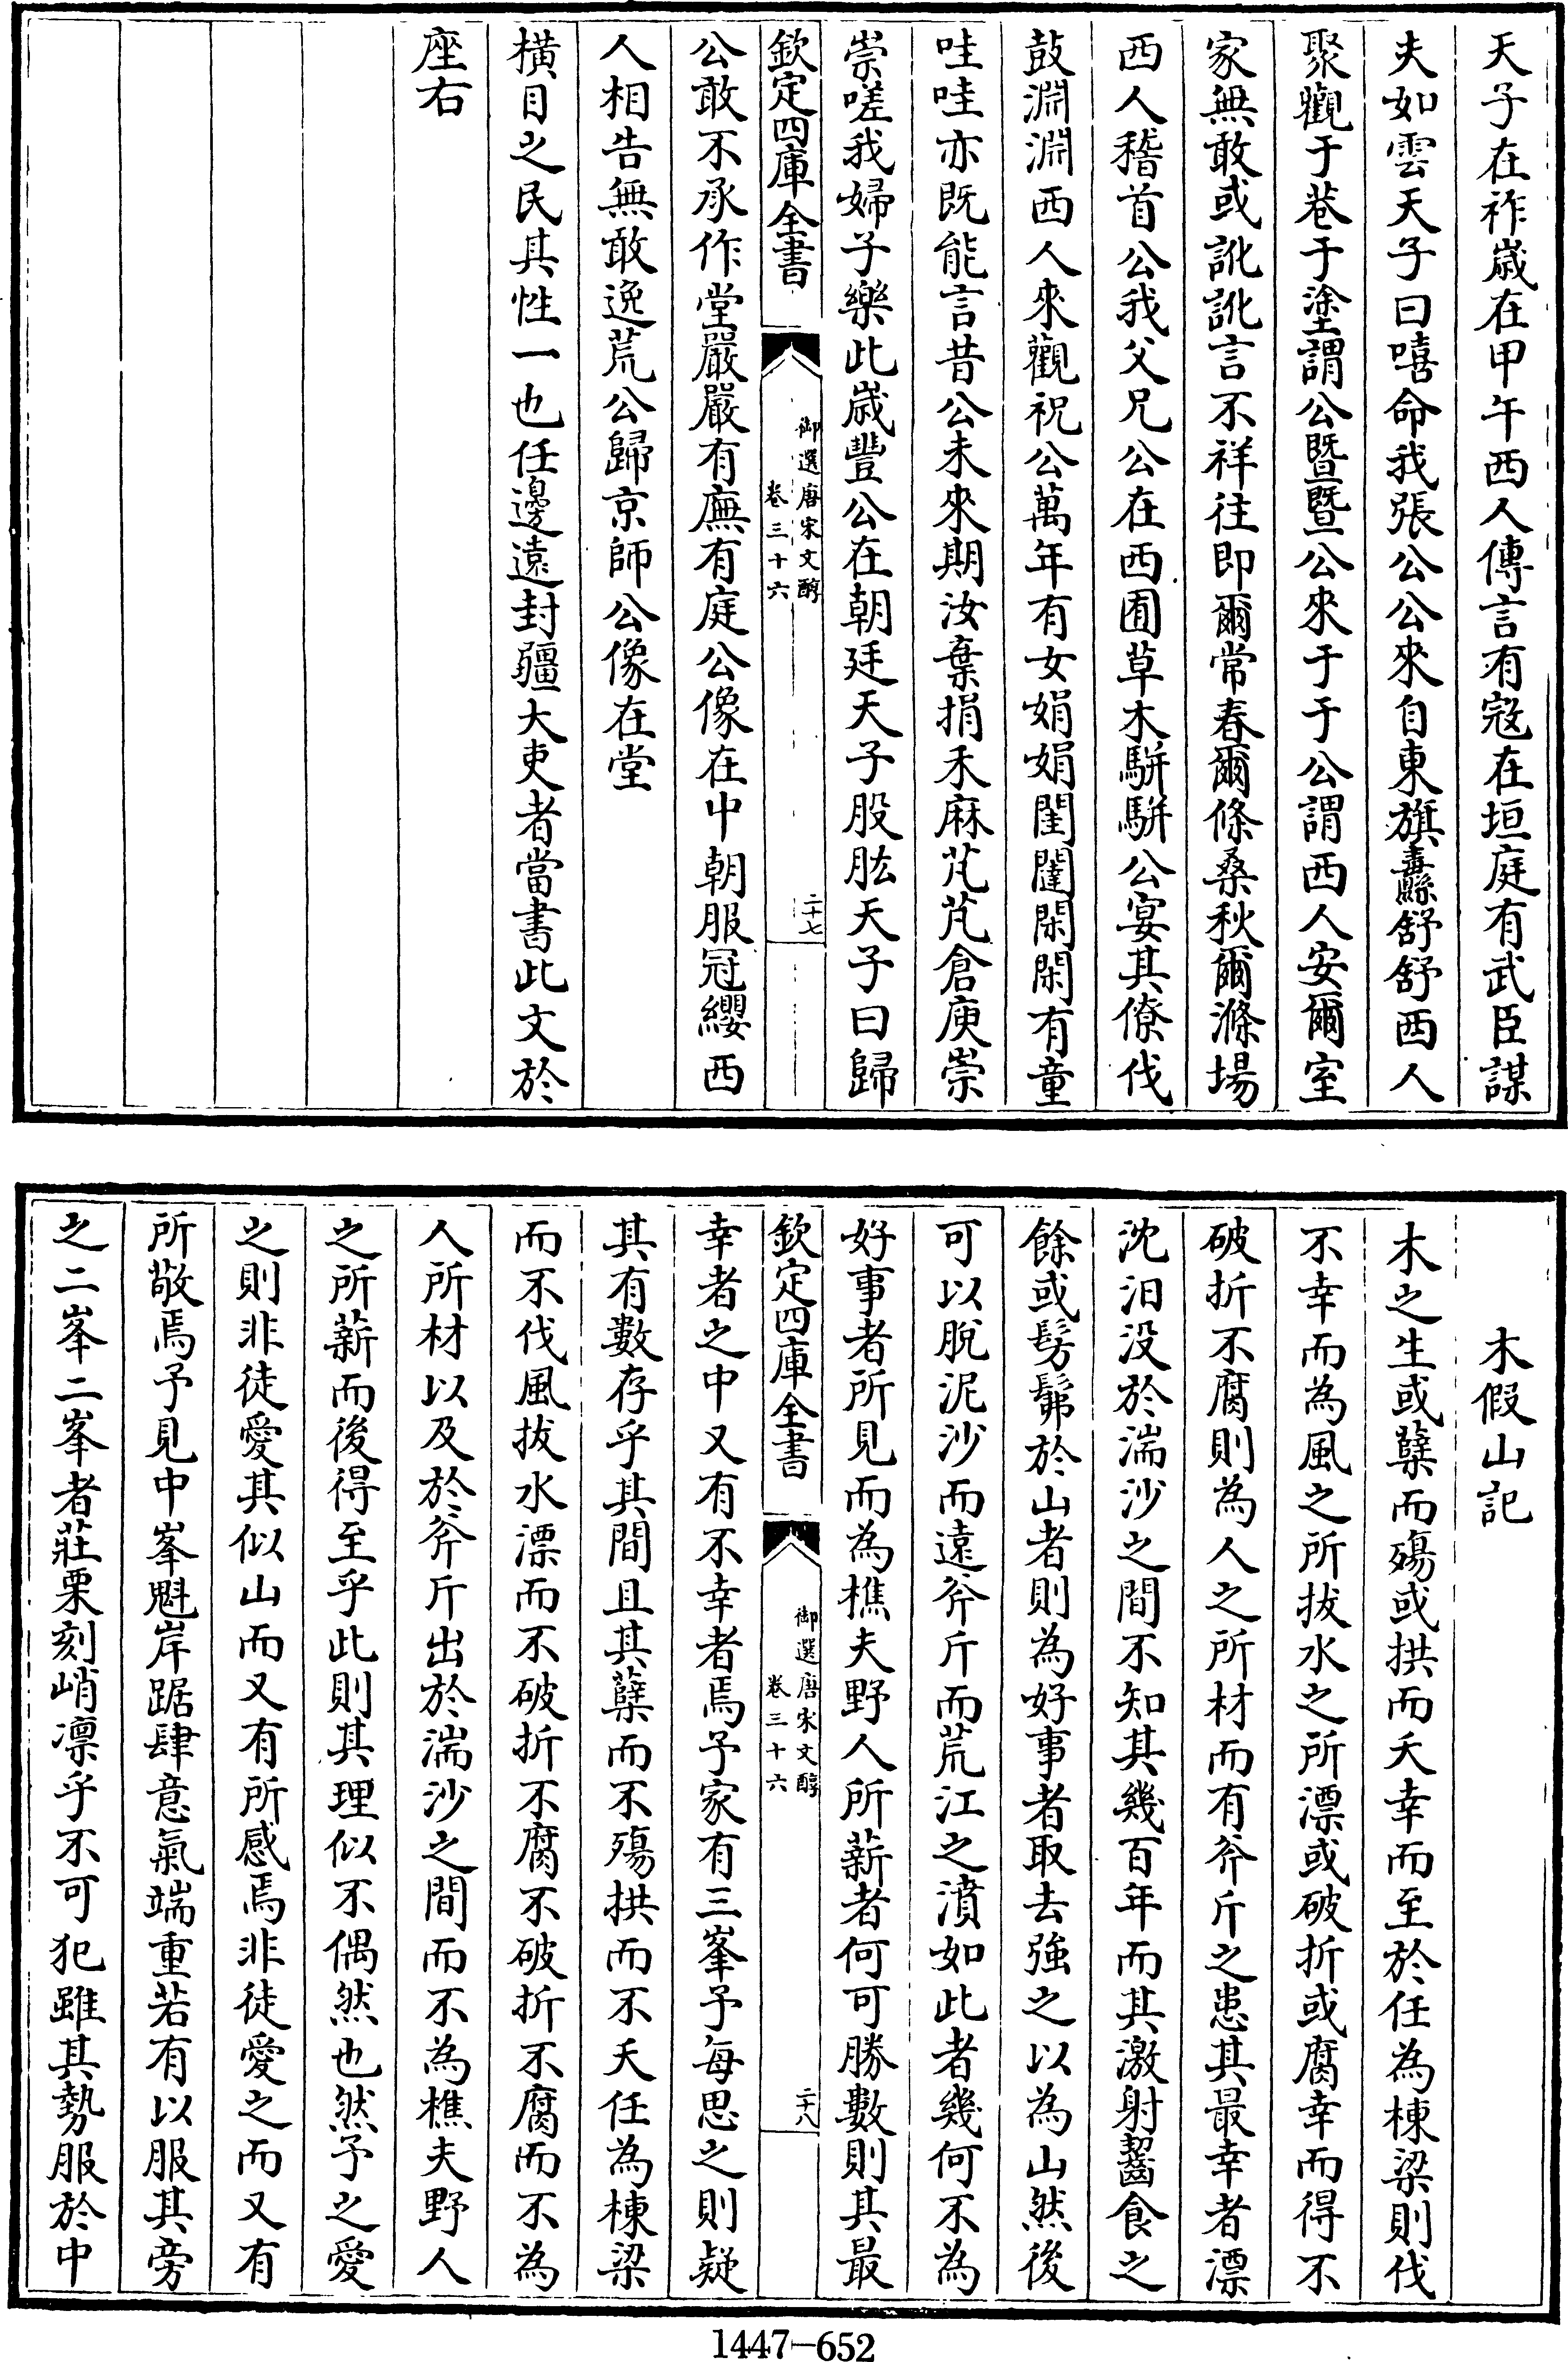 天子在祚歲在甲午西人傳言有寇在垣庭有武臣謀
夫如雲天子曰嘻命我張公公來自東旗纛舒舒西人
聚觀于巷于塗謂公暨暨公來于于公謂西人安爾室
家無敢或訛訛言不祥往即爾常春爾條桑秋爾滌場
西人稽首公我父兄公在西囿草木駢駢公宴其僚伐
鼓淵淵西人來觀祝公萬年有女娟娟閨闥閑閑有童
哇哇亦既能言昔公未來期汝棄捐禾麻芃芃倉庾崇
崇嗟我婦子樂此歲豐公在朝廷天子股肱天子曰歸
欽定四庫全書
御選唐宋文醇
卷三十六
二十七
公敢不承作堂嚴嚴有廡有庭公像在中朝服冠纓西
人相告無敢逸荒公歸京師公像在堂
橫目之民其性一也任邊遠封疆大吏者當書此文於
座右
木假山記
木之生或櫱而殤或拱而夭幸而至於任為棟梁則伐
不幸而為風之所拔水之所漂或破折或腐幸而得不
破折不腐則為人之所材而有斧斤之患其最幸者漂
沈汨沒於湍沙之間不知其幾百年而其激射齧食之
餘或髣髴於山者則為好事者取去強之以為山然後
可以脫泥沙而遠斧斤而荒江之濆如此者幾何不為
好事者所見而為樵夫野人所薪者何可勝數則其最
欽定四庫全書
御選唐宋文醇
卷三十六
二十八
幸者之中又有不幸者焉予家有三峯予每思之則疑
其有數存乎其間且其櫱而不殤拱而不夭任為棟梁
而不伐風拔水漂而不破折不腐不破折不腐而不為
人所材以及於斧斤出於湍沙之間而不為樵夫野人
之所薪而後得至乎此則其理似不偶然也然予之愛
之則非徒愛其似山而又有所感焉非徒愛之而又有
所敬焉予見中峯魁岸踞肆意氣端重若有以服其旁
之二峯二峯者莊栗刻峭凛乎不可犯雖其勢服於中
1447-652